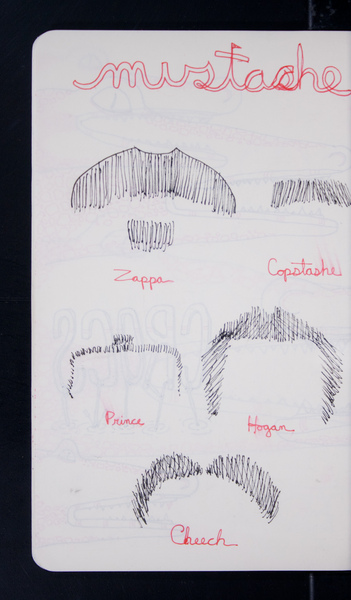 mustache
Zappa
Copstashe
Prince
Hogan
Cheech